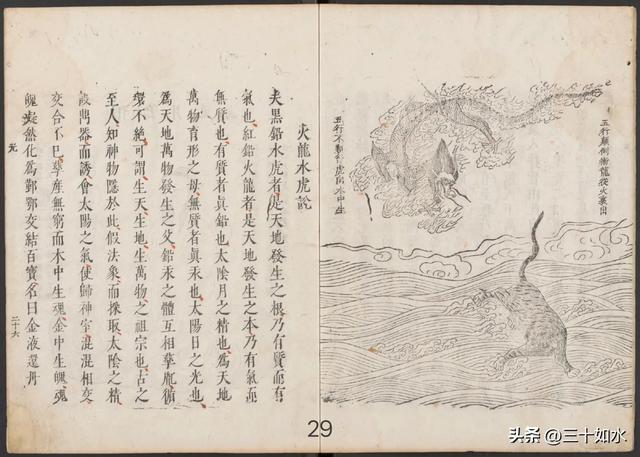 五行顛倒術龍從火裏出
五行不順行虎向水中生
火龍水虎說
夫黑鉛水虎者是天地發生之根乃有質而有
氣也紅鉛火龍者是天地發生之本乃有氣而
無質也有質者真鉛也太陰月之精也為天地
萬物育形之母無質者真汞也太陽日之光也
為天地萬物發生之父鉛汞之體互相孳胤循
環不絕可謂生天生地生萬物之祖宗也古之
至人知神物隱於此假法象而採取太陰之精
設鼎器而誘會太陽之氣使歸神室混混相交
交合不已孳産無窮而木中生魂金中生魄魂
魄凝然化為鄞鄂交結百寶名曰金液還丹
二十六
29
头条 @三十如水